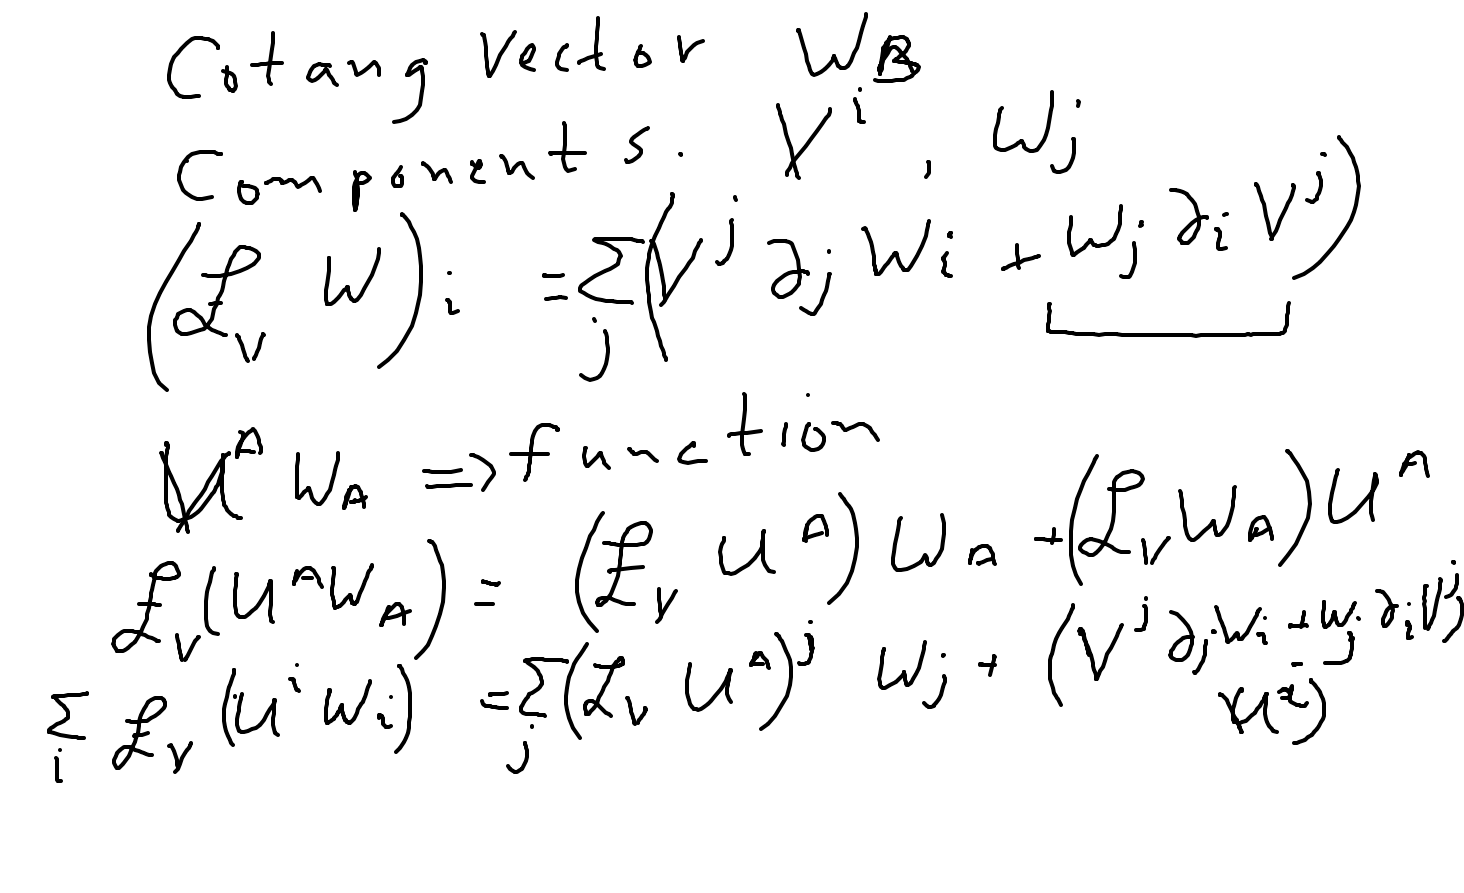 Cotang Vector W_B
Components. V^i, W_j
(£_V W)_i = Σ_j (V^j ∂_j W_i + W_j ∂_i V^j)
U^A W_A => function
£_V (U^A W_A) = (£_V U^A) W_A + (£_V W_A) U^A
Σ_i £_V (U^i W_i) = Σ_j (£_V U^A)^j W_j + (V^j ∂_j W_i + W_j ∂_i V^j)
U^i)